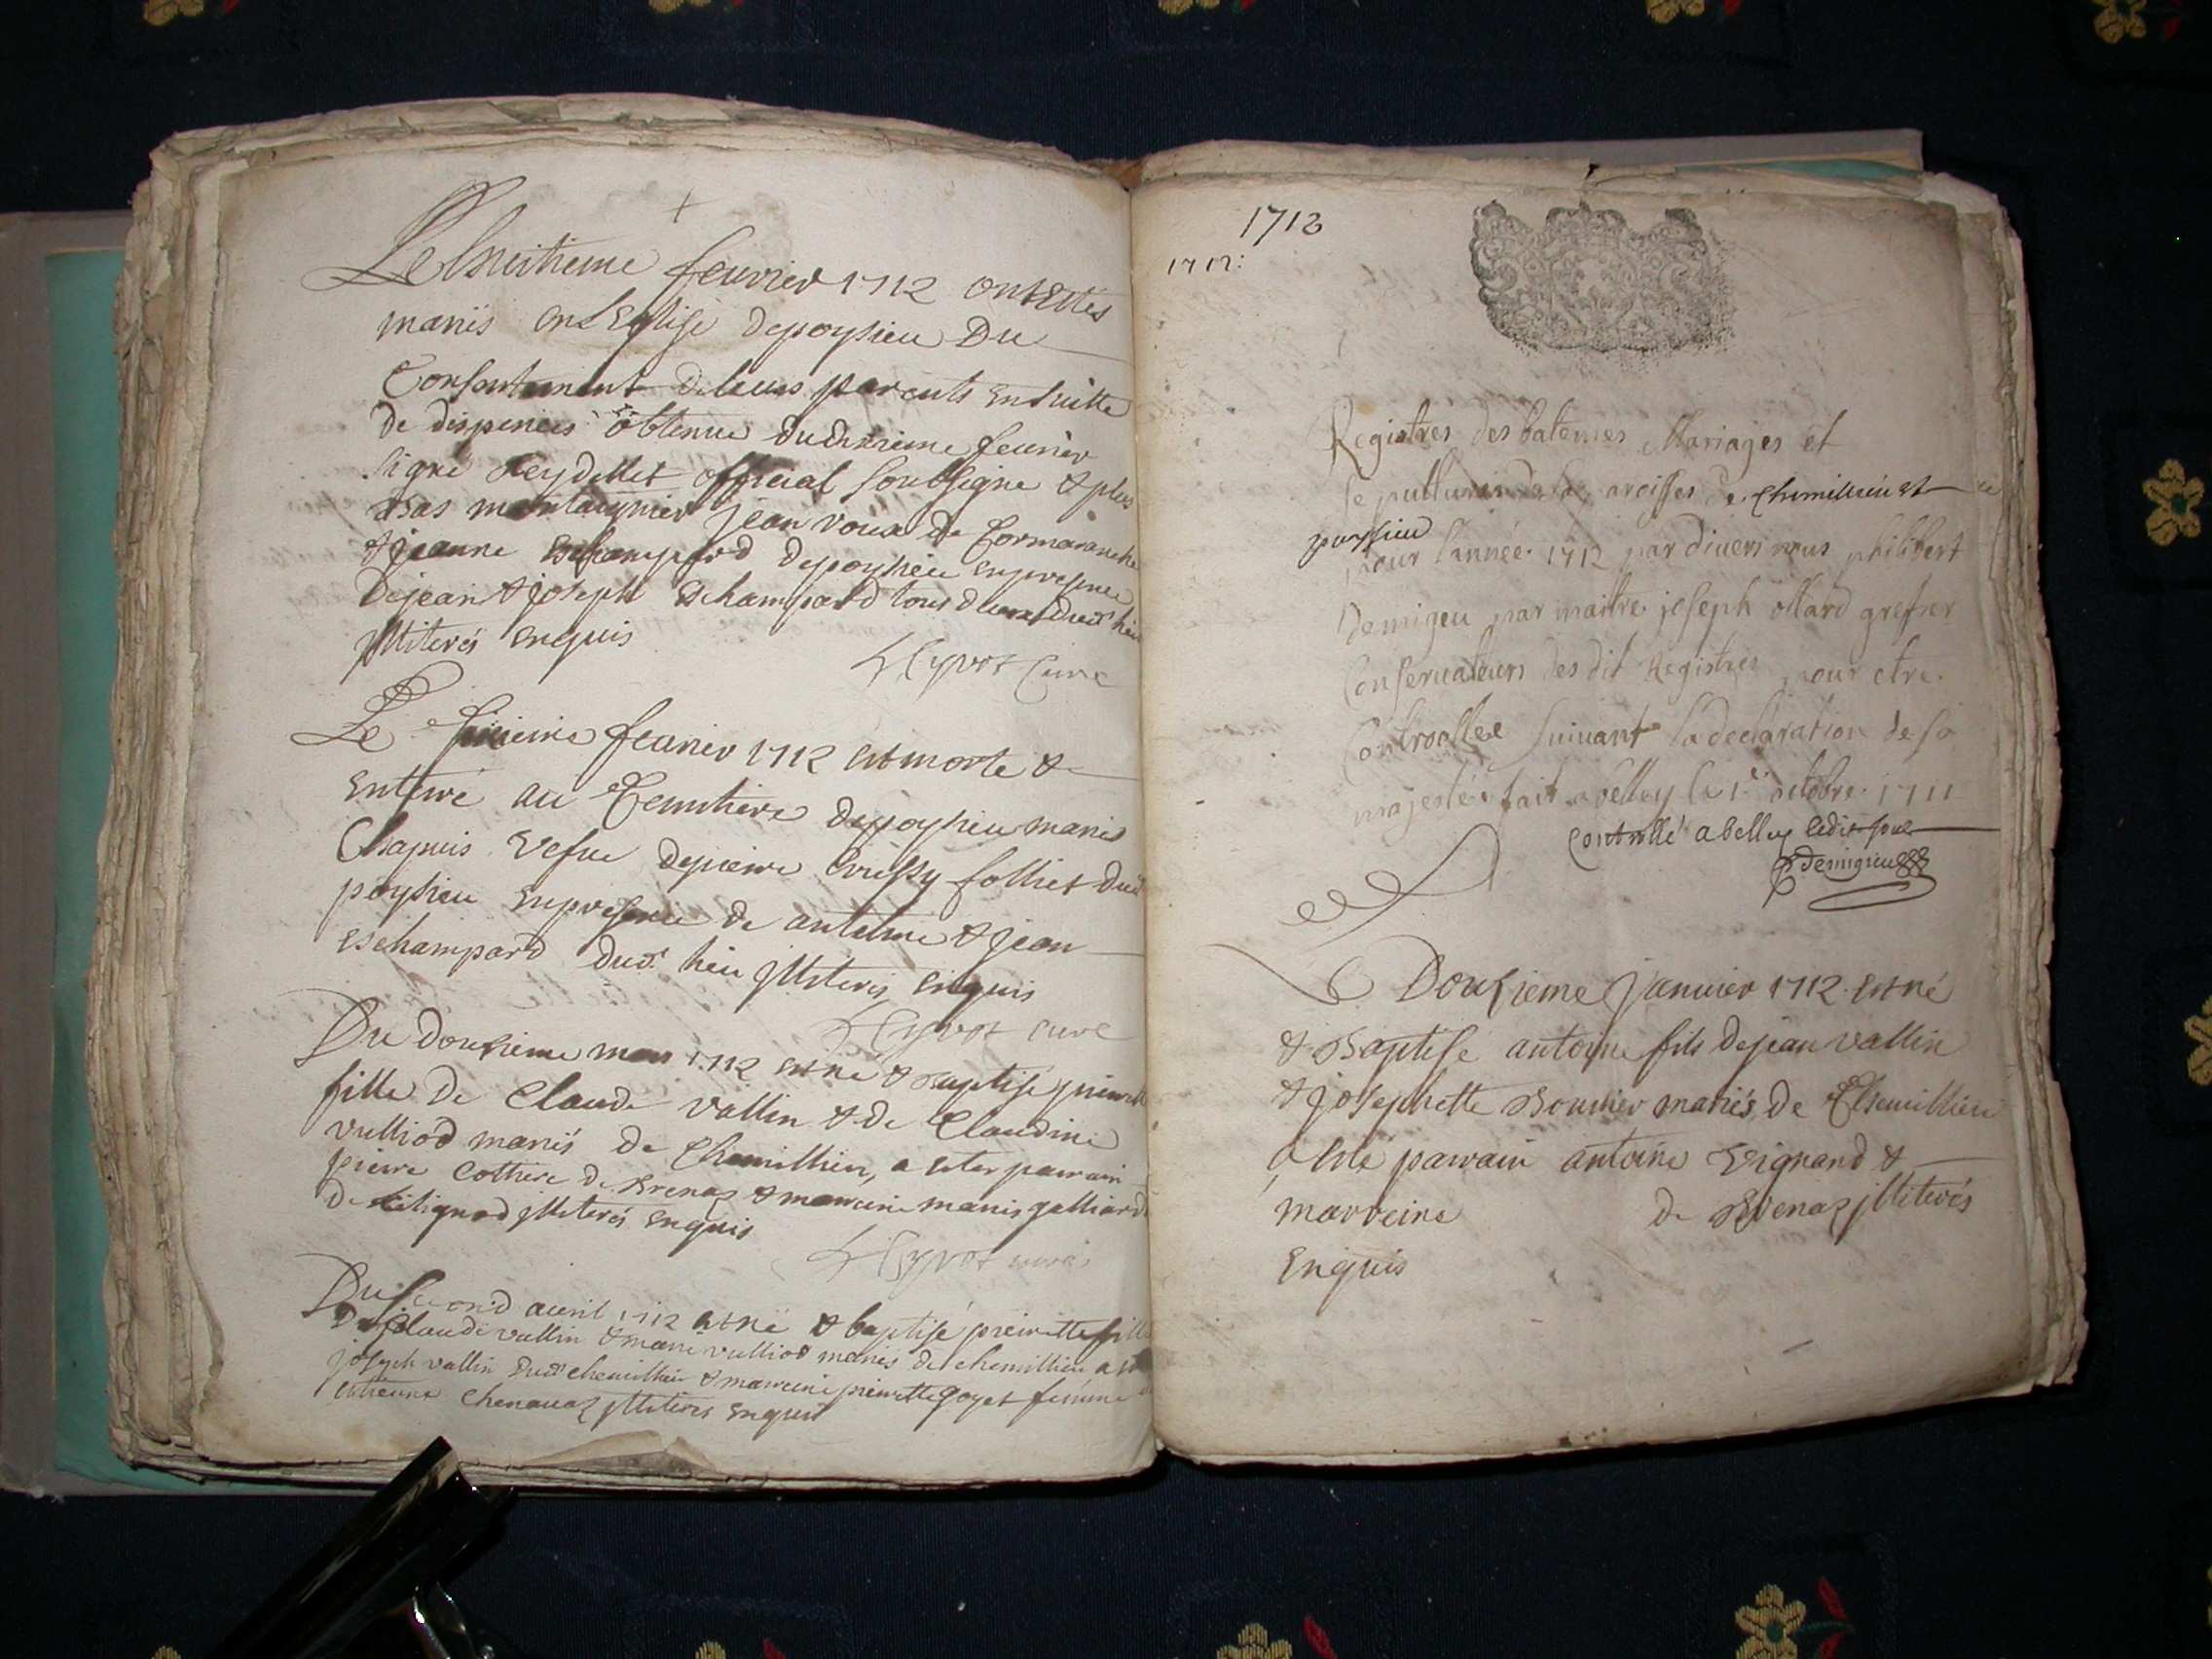 Le huitieme feurier 1712 ont Estés
mariés en L Eglise depoysieu Du
Consentement de leurs parents Ensuitte
de dispences obtenue du deuxieme feurier
signé Reydellet official soubsigne & plus
bas montaignier jean de Cormaranche
& jeanne Echampard depoysieu En presence
de jean & joseph Echampard tous deux dud.t lieu
jlliterés Enquis
Cyvot Curé
Le feurier 1712 est morte &
Enterré au Cemitiere depoysieu marie
Chapuis Vefue de pierre folliet dud
poysieu En presence de antelme & jean
Echampard dud.t lieu jlliterés Enquis
Cyvot curé
Du Douzieme mars 1712 est né & Baptisé pierrette
fille De Claude vallin & de Claudine
vulliod mariés de Chemillieu, a ester parrain
pierre Cottiere de Brenaz & marreine marie galliard
de jlliterés Enquis
Cyvot curé
Du second auril 1712 est né & baptisé pierrette fille
De Claude vallin & marie vulliod mariés de chemillieu a
joseph vallin dud.t chemillieu & marreine pierrette goyet femme
Chenauaz jlliterés Enquis
1712
1712:
Registres des batemes Mariages et
sepultures de la paroisses de Chemillieu et
poysieu
pour l'année 1712 par divers nous philibert
Demigeu par maitre joseph ollard grefier
Conseruateurs des dit Registres pour etre
Controllee suiuant la declaration de sa
majesté fait a Belley le 1er octobre 1711
Controllé a belley ledit jour
Demigieu
Le Douzieme januier 1712 est né
& Baptisé antoine fils de jean vallin
& josephette Bonnier mariés de Chemillieu
a Esté parrain antoine Vignand &
marreine de Brenaz jlliterés
Enquis